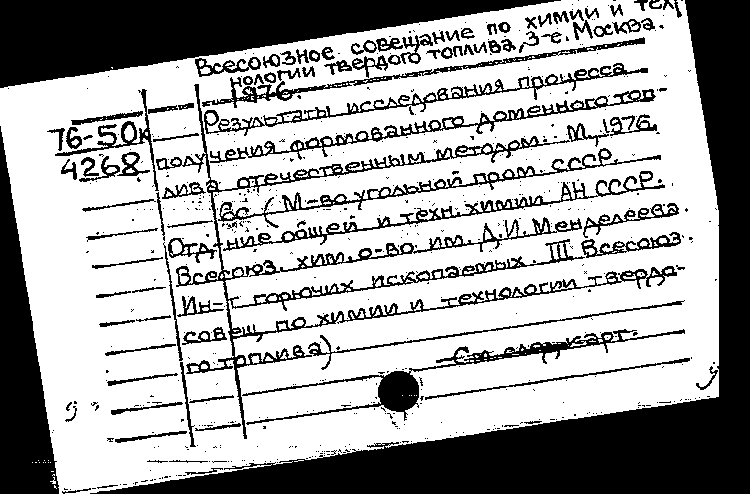 Всесоюзное совещание по химии и тех-
нологии твердого топлива, 3-е. Москва.
1976.
76-50к
4268
Результаты исследования процесса
получения формованного доменного топ-
лива отечественным методом. М., 1976.
6с (М-во угольной пром. СССР.
Отд-ние общей и техн. химии АН СССР.
Всесоюз. хим. о-во им. Д.И. Менделеева.
Ин-т горючих ископаемых. III Всесоюз.
совещ. по химии и технологии твердо-
го топлива).
См. след. карт.